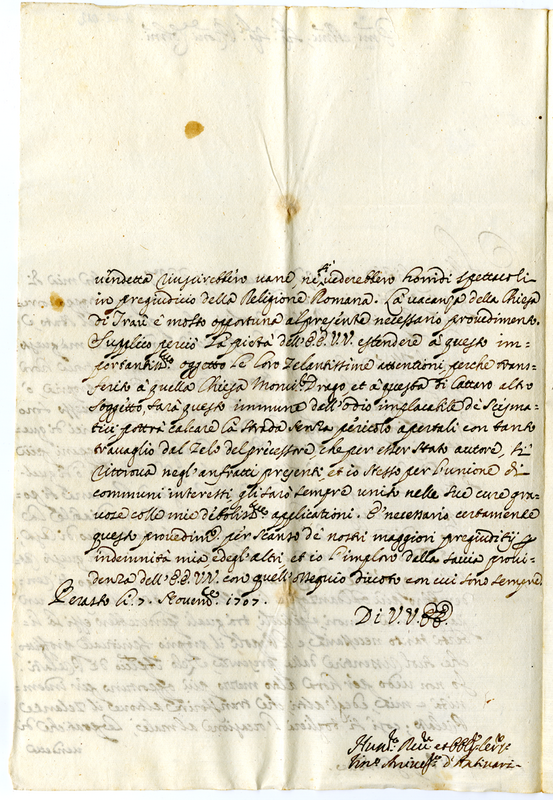 vendetta riuscirebbero vane ne si vederebbero horridi spettacoli
in pregiudicio della Religione Romana. La vacanza della Chiesa
di Traù è molto opportuna al presente necessario provedimento.
Supplico perciò la pietà dell'EE.VV. estendere à questo im-
portantiss.mo oggetto le loro Zelantissime attentioni, perche trans-
ferito à quella Chiesa Monsig.r Drago et à questa di Cattaro altro
soggetto, sarà questo immune dall'odio implacabile de Scisma-
tici, potrà calcare la strada senza pericolo apertali con tanto
travaglio dal Zelo del precessore che per esser stato autore, si
ritrova negl'anfratti presenti, et io stesso per l'unione di
communi interessi gli sarò sempre unito nelle sue cure gra-
vose colle mie debolis.me applicationi. E' necessario certamente
questo provedim.to per scanso de nostri maggiori pregiuditij
indennità mia, e degl'altri et io l'imploro dalla saccia provi-
denza dell'EE.VV. con quell'ossequio divoto con cui sono sempre
Perasto li 7. Novemb.re 1707.
Di V.V.EE.
Hum.mo Rev.te et
Arcives.o d'Antivari